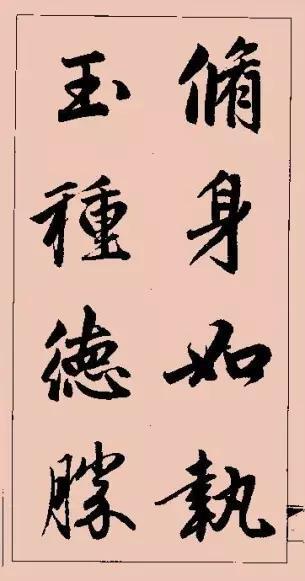 脩身如執
玉種德勝